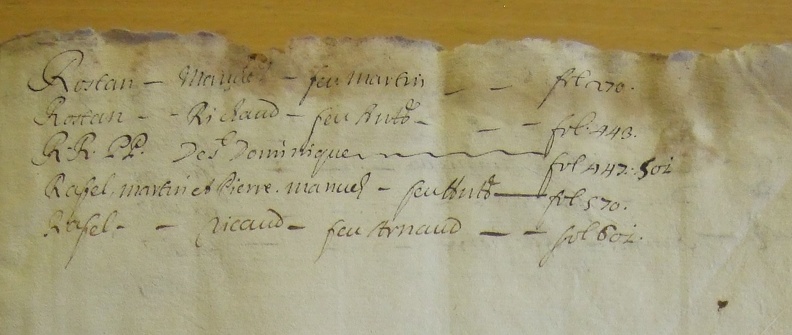 Rostan - Manuel - feu martin - - fol 270.
Rostan - - Richaud - feu Anto͞ - - - fol. 443.
R. R. P.P. De St Dominique fol 447. 501
Rafel. martin et Pierre. manuel - feu Anto͞ - fol 570.
Rafel - - Ricaud - feu Arnaud - - fol 601.